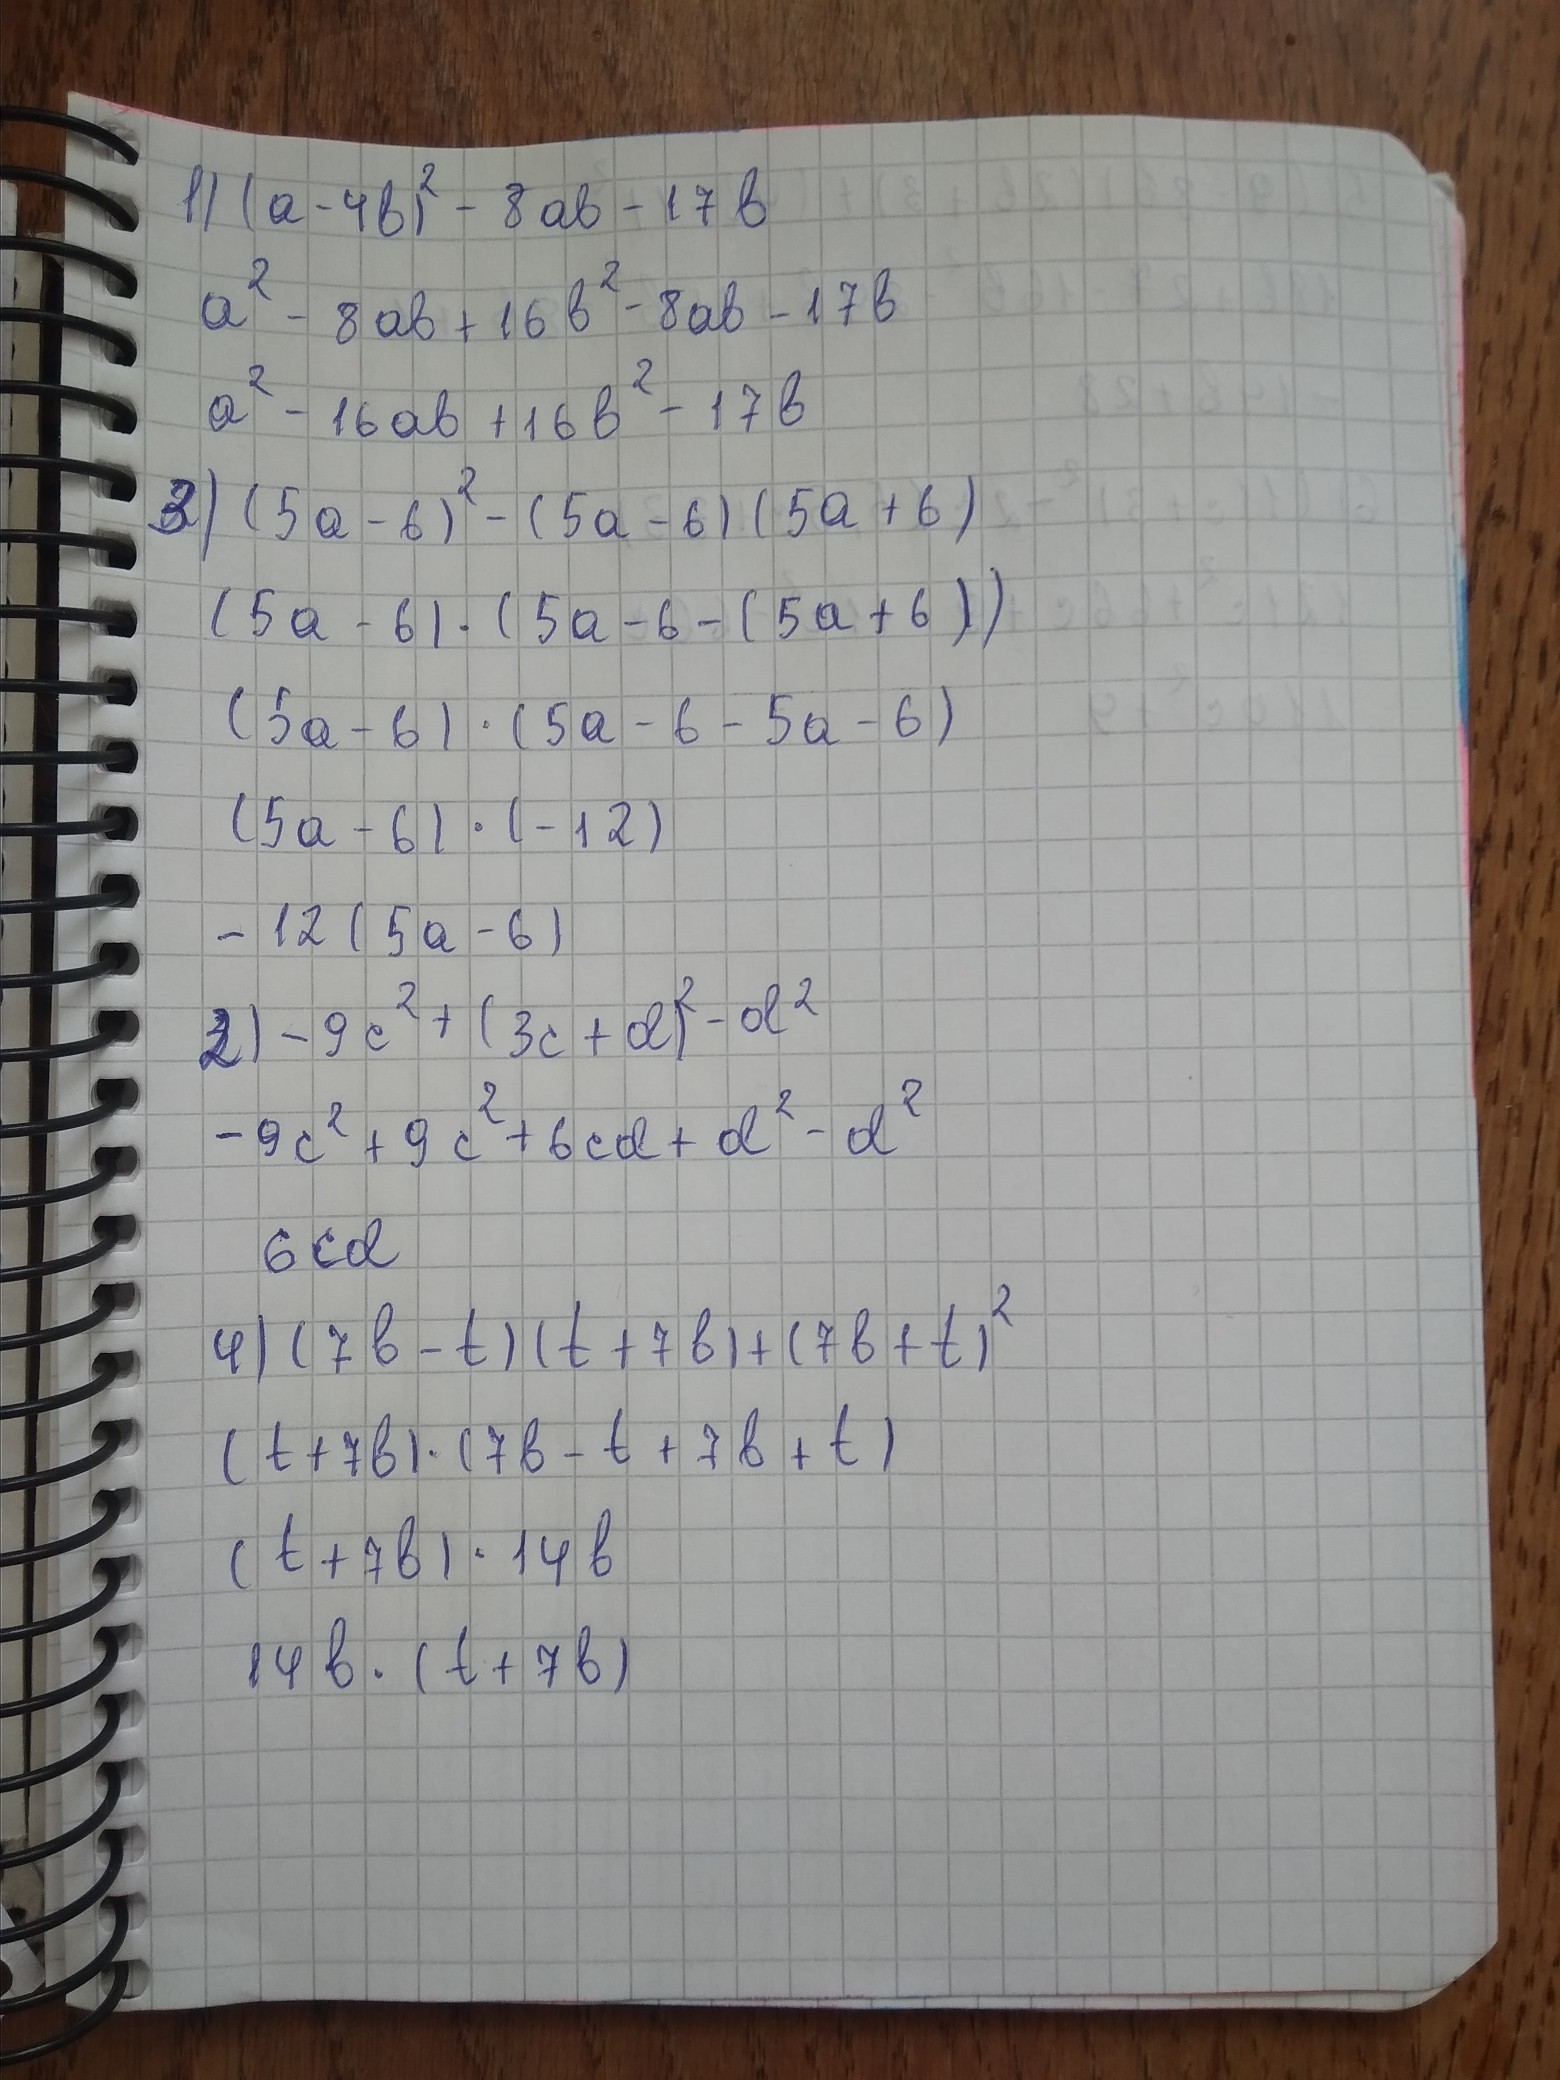 1) (a-4b)² - 8ab - 17b
a² - 8ab + 16b² - 8ab - 17b
a² - 16ab + 16b² - 17b
3) (5a - 6)² - (5a - 6) (5a + 6)
(5a - 6) · (5a - 6 - (5a + 6))
(5a - 6) · (5a - 6 - 5a - 6)
(5a - 6) · (-12)
- 12 (5a - 6)
2) - 9c² + (3c + d)² - d²
- 9c² + 9c² + 6cd + d² - d²
6cd
4) (7b - t) (t + 7b) + (7b + t)²
(t + 7b) · (7b - t + 7b + t)
(t + 7b) · 14b
14b · (t + 7b)